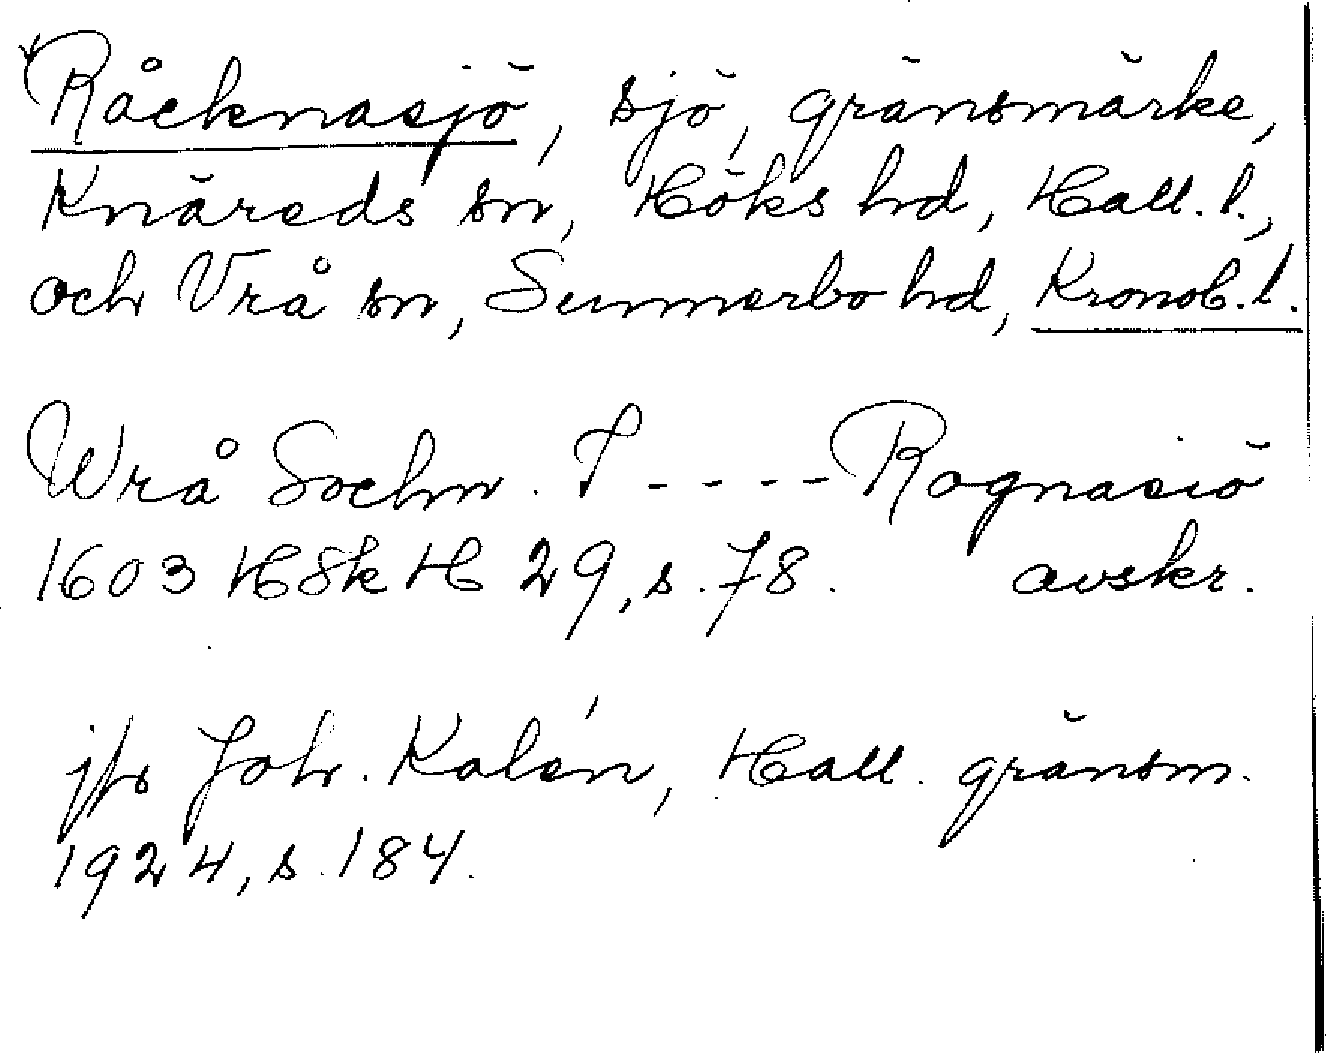 Råcknasjö, sjö, gränsmärke,
Knäreds sn, Höks hd, Hall. l.,
och Vrå sn, Sunnerbo hd, Kronob. l.
Wrå Sochn. I - - - - Rognasiö
1603 HSk H 29, s. 78. avskr.
jfr Joh. Kalén, Hall. gränsm.
1924, s. 184.